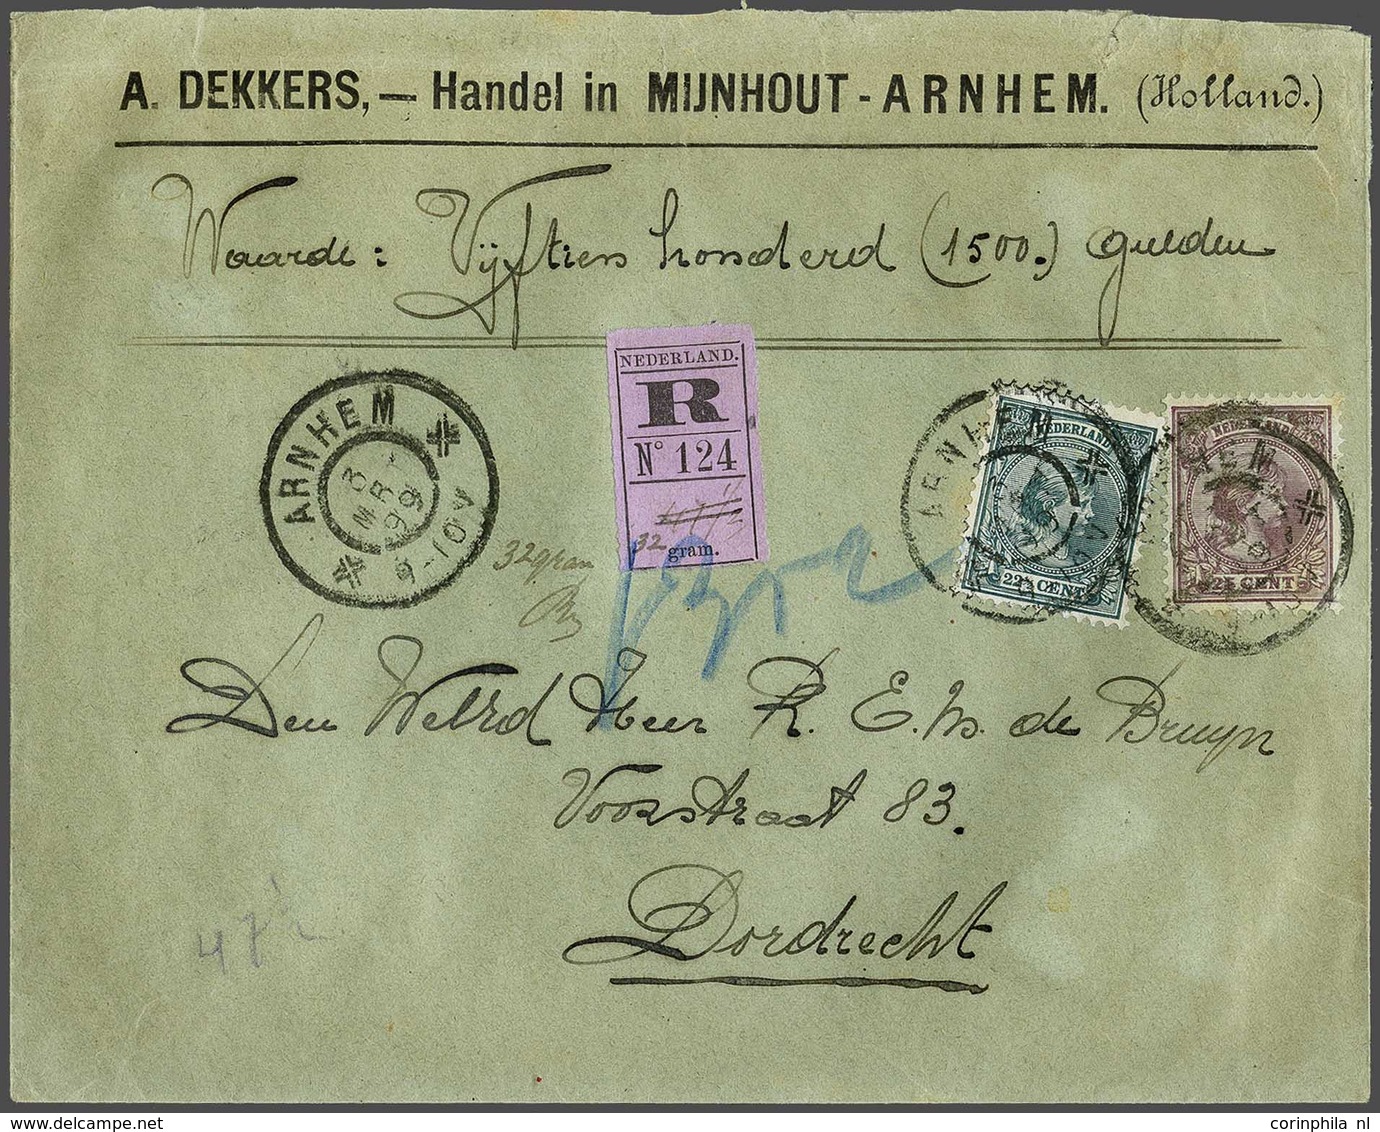 A. DEKKERS,— Handel in MIJNHOUT-ARNHEM. (Holland.)
Waarde: Vijftien honderd (1500.) gulden
NEDERLAND.
R
No 124
32 gram.
ARNHEM
3 MRT 99
9-10V
32 gram
ARNHEM
NEDERLAND
22½ CENT
NEDERLAND
25 CENT
Den WelEd Heer R. E. M. de Bruyn
Voorstraat 83.
Dordrecht
47½
corinphila nl